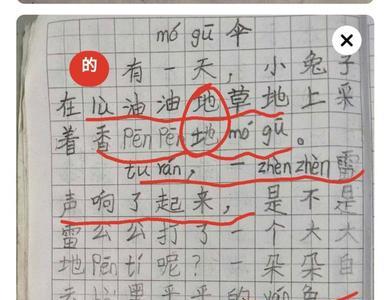 mó gū 伞
的
有一天，小兔子
在lù油油地草地上采
着香pēn pēn地mó gū。
tū rán，一zhèn zhèn雷
声响了起来，是不是
雷公公打了一个大大
地pēn tí呢？一朵朵自